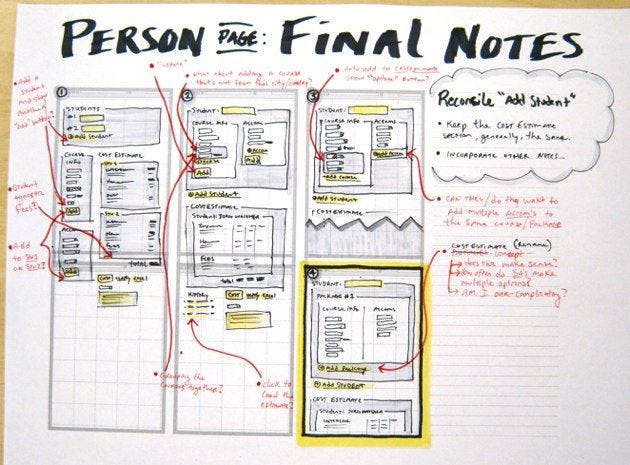 PERSON PAGE: FINAL NOTES
• Add a
student
Add button?
• "update"
• what about adding a course
that's not from this city/
• Auto-add to
show "update" button?
①
STUDENTS
#1
#2
⊕ Add Student
COURSE
INFO
COST ESTIMATE
STU 1
STU 2
Add
ACCOM
Add
TOTAL
COST
• Student
Fees?
• Add
to STU1
or STU2?
②
STUDENT:
COURSE INFO
ACCOM
⊕ Accom
Add
Add
⊕ Add Student
COST ESTIMATE
STUDENT:
FEES
TOTAL
HISTORY
COST
• Grouping the
courses together?
• click to
load the
estimate?
③
STUDENT:
COURSE INFO
ACCOM
ADD COURSE
⊕ Add Student
COST ESTIMATE
④
STUDENT:
PACKAGE #1
COURSE INFO
ACCOMS
⊕ Add Package
⊕ Add STUDENT
COST ESTIMATE
STUDENT:
Reconcile "Add Student"
• Keep the Cost Estimate
section, generally, the same.
• INCORPORATE OTHER NOTES...
• CAN THEY/do they want to
Add multiple Accom's to
the same course/PACKAGE
COST ESTIMATE (RENAME)
concept
• Does this make sense?
• How often do SA's make
multiple options?
• Am I over-complicating?